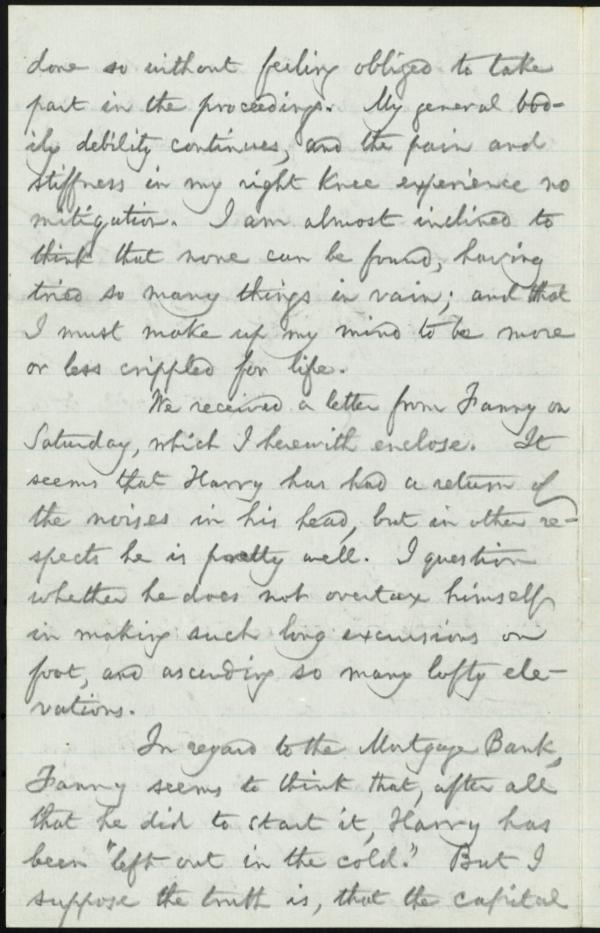 done so without feeling obliged to take
part in the proceedings. My general bod-
ily debility continues, and the pain and
stiffness in my right knee experience no
mitigation. I am almost inclined to
think that none can be found, having
tried so many things in vain; and that
I must make up my mind to be more
or less crippled for life.
We received a letter from Fanny on
Saturday, which I herewith enclose. It
seems that Harry has had a return of
the noises in his head, but in other re-
spects he is pretty well. I question
whether he does not overtax himself
in making such long excursions on
foot, and ascending so many lofty ele-
vations.
In regard to the Mortgage Bank,
Fanny seems to think that, after all
that he did to start it, Harry has
been "left out in the cold." But I
suppose the truth is, that the capital